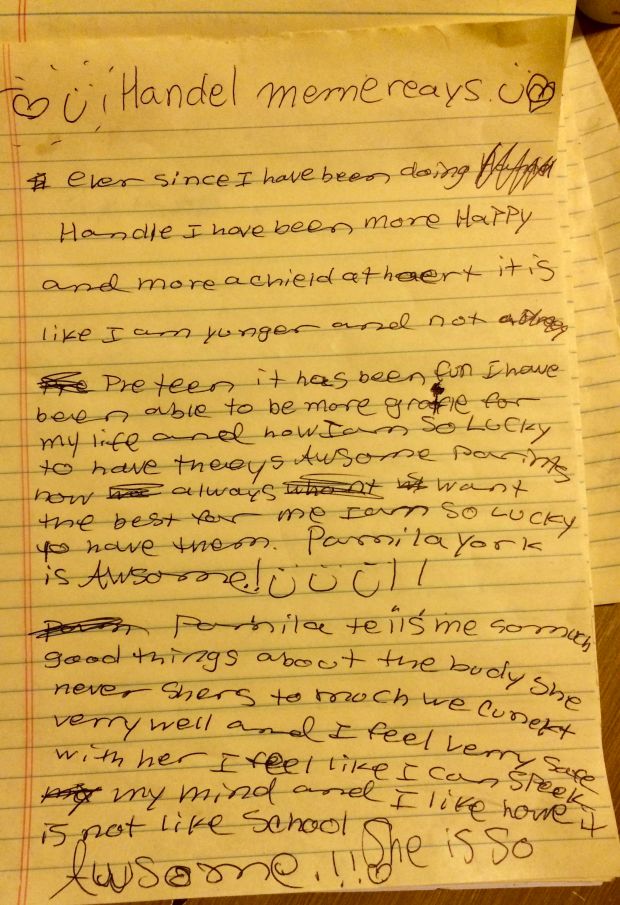 Handel memereays.
ever since I have been doing
Handle I have been more Happy
and more a chield at haert it is
like I am yunger and not a
Pre teen it has been fun I have
been able to be more gratfie for
my life and how I am so Lucky
to have theeys Awsome parints
how always want
the best for me I am so Lucky
to have them. Pamila york
is Awsome.!
Pamila tells me so much
good things about the body she
never shers to much we cunekt
verry well and I feel verry safe
with her I feel like I can speek
my mind and I like howe it
is not like School
She is so
Awsome.!!!